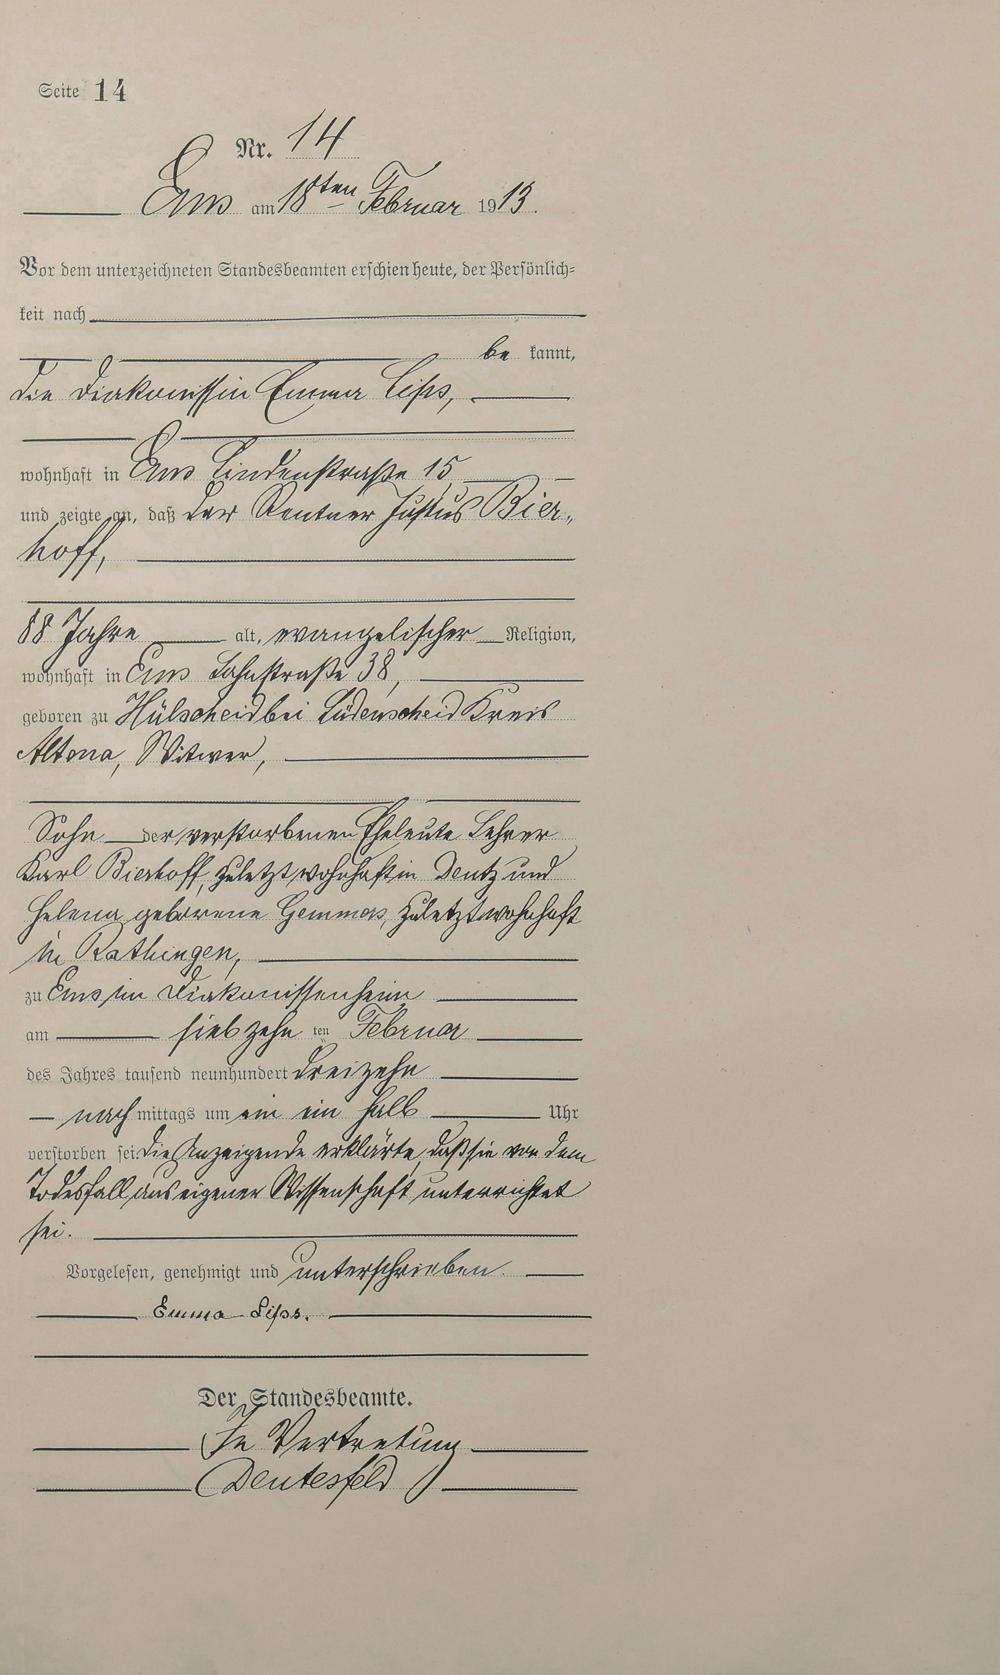 Seite 14
Nr. 14
Ems am 18ten Februar 1913.
Vor dem unterzeichneten Standesbeamten erschien heute, der Persönlich-
keit nach
be kannt,
die Diakonissin Emma Lips,
wohnhaft in Ems Lindenstraße 15
und zeigte an, daß der Rentner Justus Bier-
hoff,
88 Jahre alt, evangelischer Religion,
wohnhaft in Ems Lahnstraße 38,
geboren zu Hülscheid bei Lüdenscheid Kreis
Altona, Witwer,
Sohn der verstorbenen Eheleute Lehrer
Karl Bierhoff, zuletzt wohnhaft in Deutz und
Helena geborene Gemmas, zuletzt wohnhaft
in Rathingen,
zu Ems, im Diakonissenheim
am siebzehn ten Februar
des Jahres tausend neunhundert dreizehn
nach mittags um ein ein halb Uhr
verstorben sei. Die Anzeigende erklärte, daß sie von dem
Todesfall aus eigener Wissenschaft unterrichtet
sei.
Vorgelesen, genehmigt und unterschrieben.
Emma Lips.
Der Standesbeamte.
In Vertretung
Deutesfeld